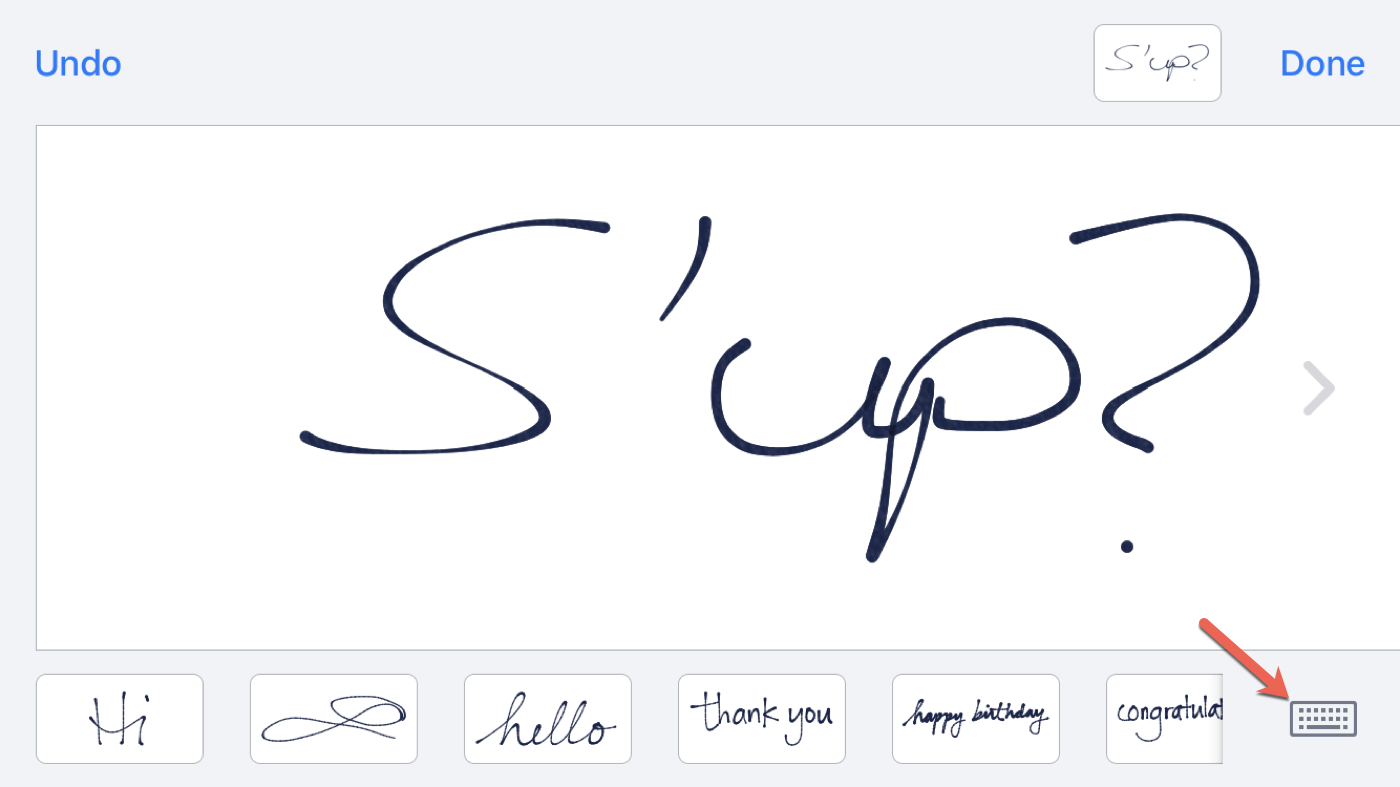 Undo S'up? Done
S'up?
Hi hello thank you happy birthday congratulat